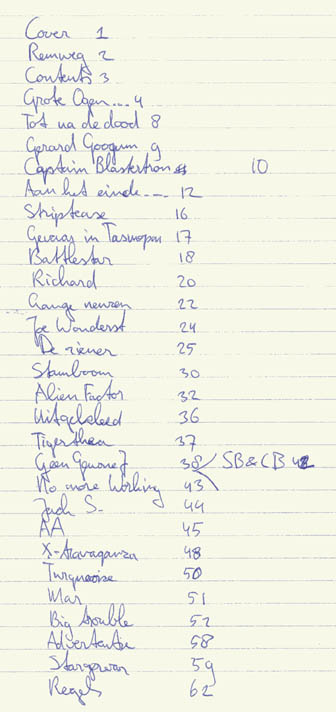 Cover 1
Remweg 2
Contents 3
Grote Ogen... 4
Tot na de dood 8
Gerard Googum 9
Captain Blastertron 10
Aan het einde... 12
Striptease 16
Gevaar in 17
Battlestar 18
Richard 20
Lange neuzen 22
Joe Wonderst 24
De ziener 25
Stamboom 30
Alien Factor 32
Uitgekleed 36
37
Geen 38 SB & CB 42
No more working 43
S. 44
AA 45
X-travaganza 48
Turquoise 50
Mar 51
Big trouble 52
Advertentie 58
59
Regels 62